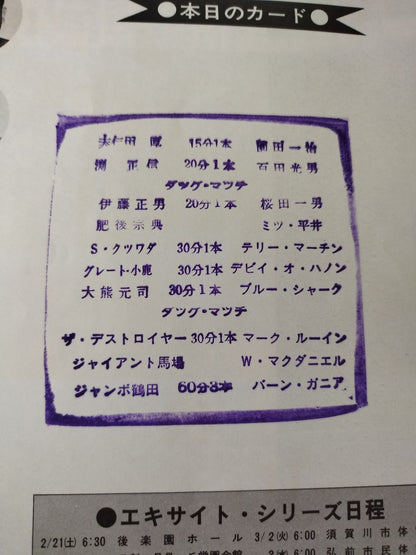 ●本日のカード●
大仁田 厚 15分1本 薗田一治
渕 正信 20分1本 百田光男
タツグ・マツチ
伊藤正男 20分1本 桜田一男
肥後宗典 ミツ・平井
S・クツワダ 30分1本 テリー・マーチン
グレート・小鹿 30分1本 デビイ・オ・ハノン
大熊元司 30分1本 ブルー・シャーク
タツグ・マツチ
ザ・デストロイヤー 30分1本 マーク・ルーイン
ジャイアント馬場 W・マクダニエル
ジャンボ鶴田 60分3本 バーン・ガニア
●エキサイト・シリーズ日程
2/21(土) 6:30 後楽園ホール 3/2(火) 6:00 須賀川市体
6:00 弘前市民